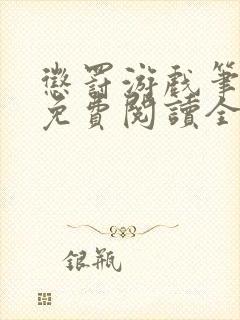 懲罰游戲筆
免費閱讀全
銀瓶